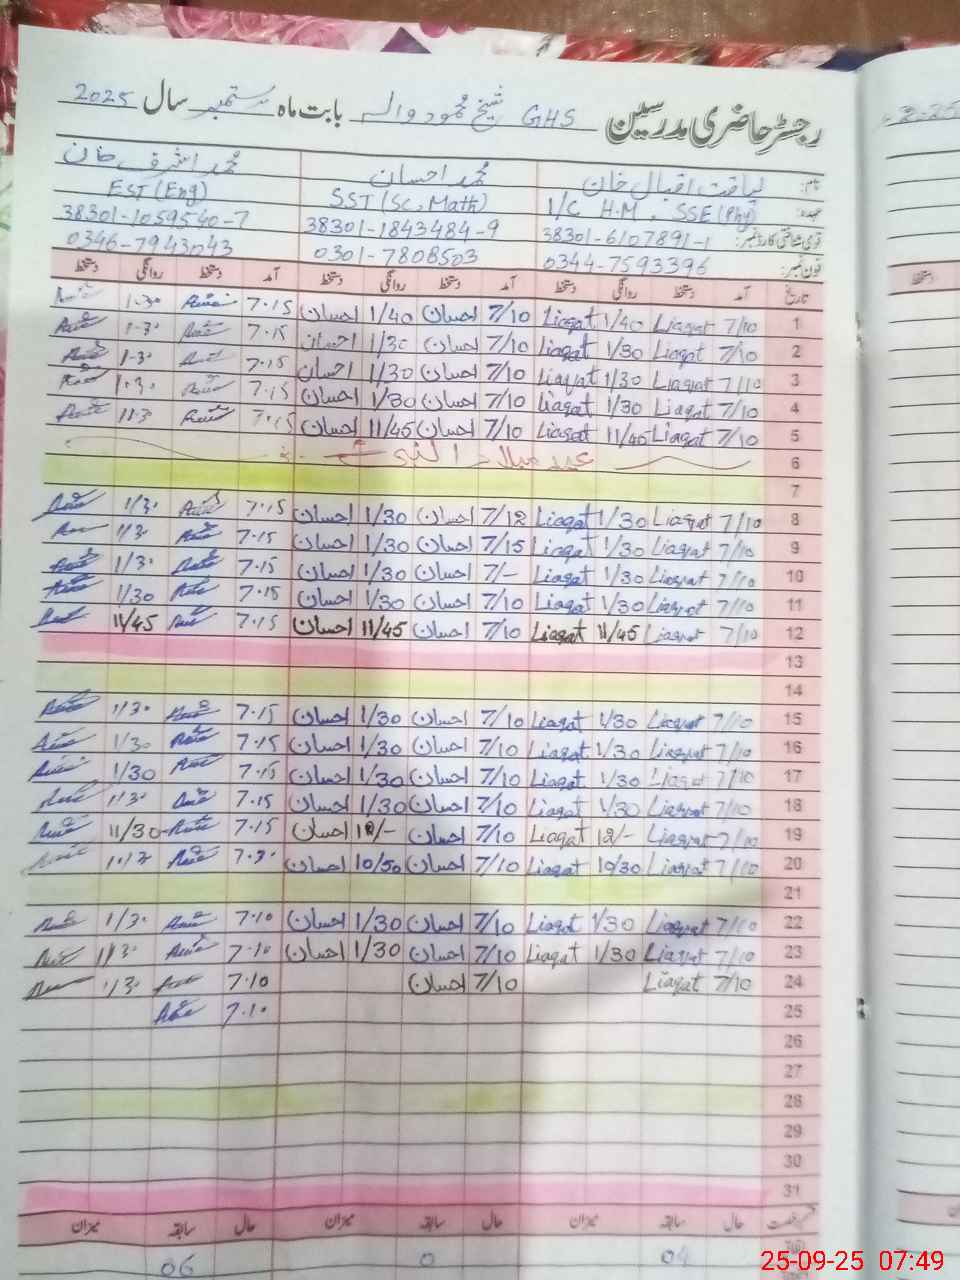 رجسٹر حاضری مدرسین GHS شیخ محمود والہ بابت ماہ ستمبر سال 2025
نام: لیاقت اقبال خان محمد احسان محمد اشرف خان
عہدہ: I/C H.M. SSE(Phy) SST(Sc.Math) EST(Eng)
قومی شناختی کارڈ نمبر: 38301-6107891-1 38301-1843484-9 38301-1059540-7
فون نمبر: 0344-7593396 0301-7808503 0346-7943043
تاریخ آمد دستخط روانگی دستخط آمد دستخط روانگی دستخط آمد دستخط روانگی دستخط
1 7/10 Liaqat 1/40 Liaqat 7/10 احسان 1/40 احسان 7.15 1.30
2 7/10 Liaqat 1/30 Liaqat 7/10 احسان 1/30 احسان 7.15 1.30
3 7/10 Liaqat 1/30 Liaqat 7/10 احسان 1/30 احسان 7.15 1.30
4 7/10 Liaqat 1/30 Liaqat 7/10 احسان 1/30 احسان 7.15 1.30
5 7/10 Liaqat 11/45 Liaqat 7/10 احسان 11/45 احسان 7.15
6 عید میلاد النبی
7
8 7/10 Liaqat 1/30 Liaqat 7/12 احسان 1/30 احسان 7.15 1/30
9 7/10 Liaqat 1/30 Liaqat 7/15 احسان 1/30 احسان 7.15 1/30
10 7/10 Liaqat 1/30 Liaqat 7/- احسان 1/30 احسان 7.15 1/30
11 7/10 Liaqat 1/30 Liaqat 7/10 احسان 1/30 احسان 7.15 1/30
12 7/10 Liaqat 11/45 Liaqat 7/10 احسان 11/45 احسان 7.15 11/45
13
14
15 7/10 Liaqat 1/30 Liaqat 7/10 احسان 1/30 احسان 7.15 1/30
16 7/10 Liaqat 1/30 Liaqat 7/10 احسان 1/30 احسان 7.15 1/30
17 7/10 Liaqat 1/30 Liaqat 7/10 احسان 1/30 احسان 7.15 1/30
18 7/10 Liaqat 1/30 Liaqat 7/10 احسان 1/30 احسان 7.15 1/30
19 7/10 Liaqat 12/- Liaqat 7/10 احسان 12/- احسان 7.15 11/30
20 7/10 Liaqat 10/30 Liaqat 7/10 احسان 10/50 احسان
21
22 7/10 Liaqat 1/30 Liaqat 7/10 احسان 1/30 احسان 7.10 1/30
23 7/10 Liaqat 1/30 Liaqat 7/10 احسان 1/30 احسان 7.10 1/30
24 7/10 Liaqat 7/10 احسان 7.10 1/30
25 7.10
26
27
28
29
30
31
حال سابقہ میزان حال سابقہ میزان حال سابقہ میزان
04 0 06
25-09-25 07:49